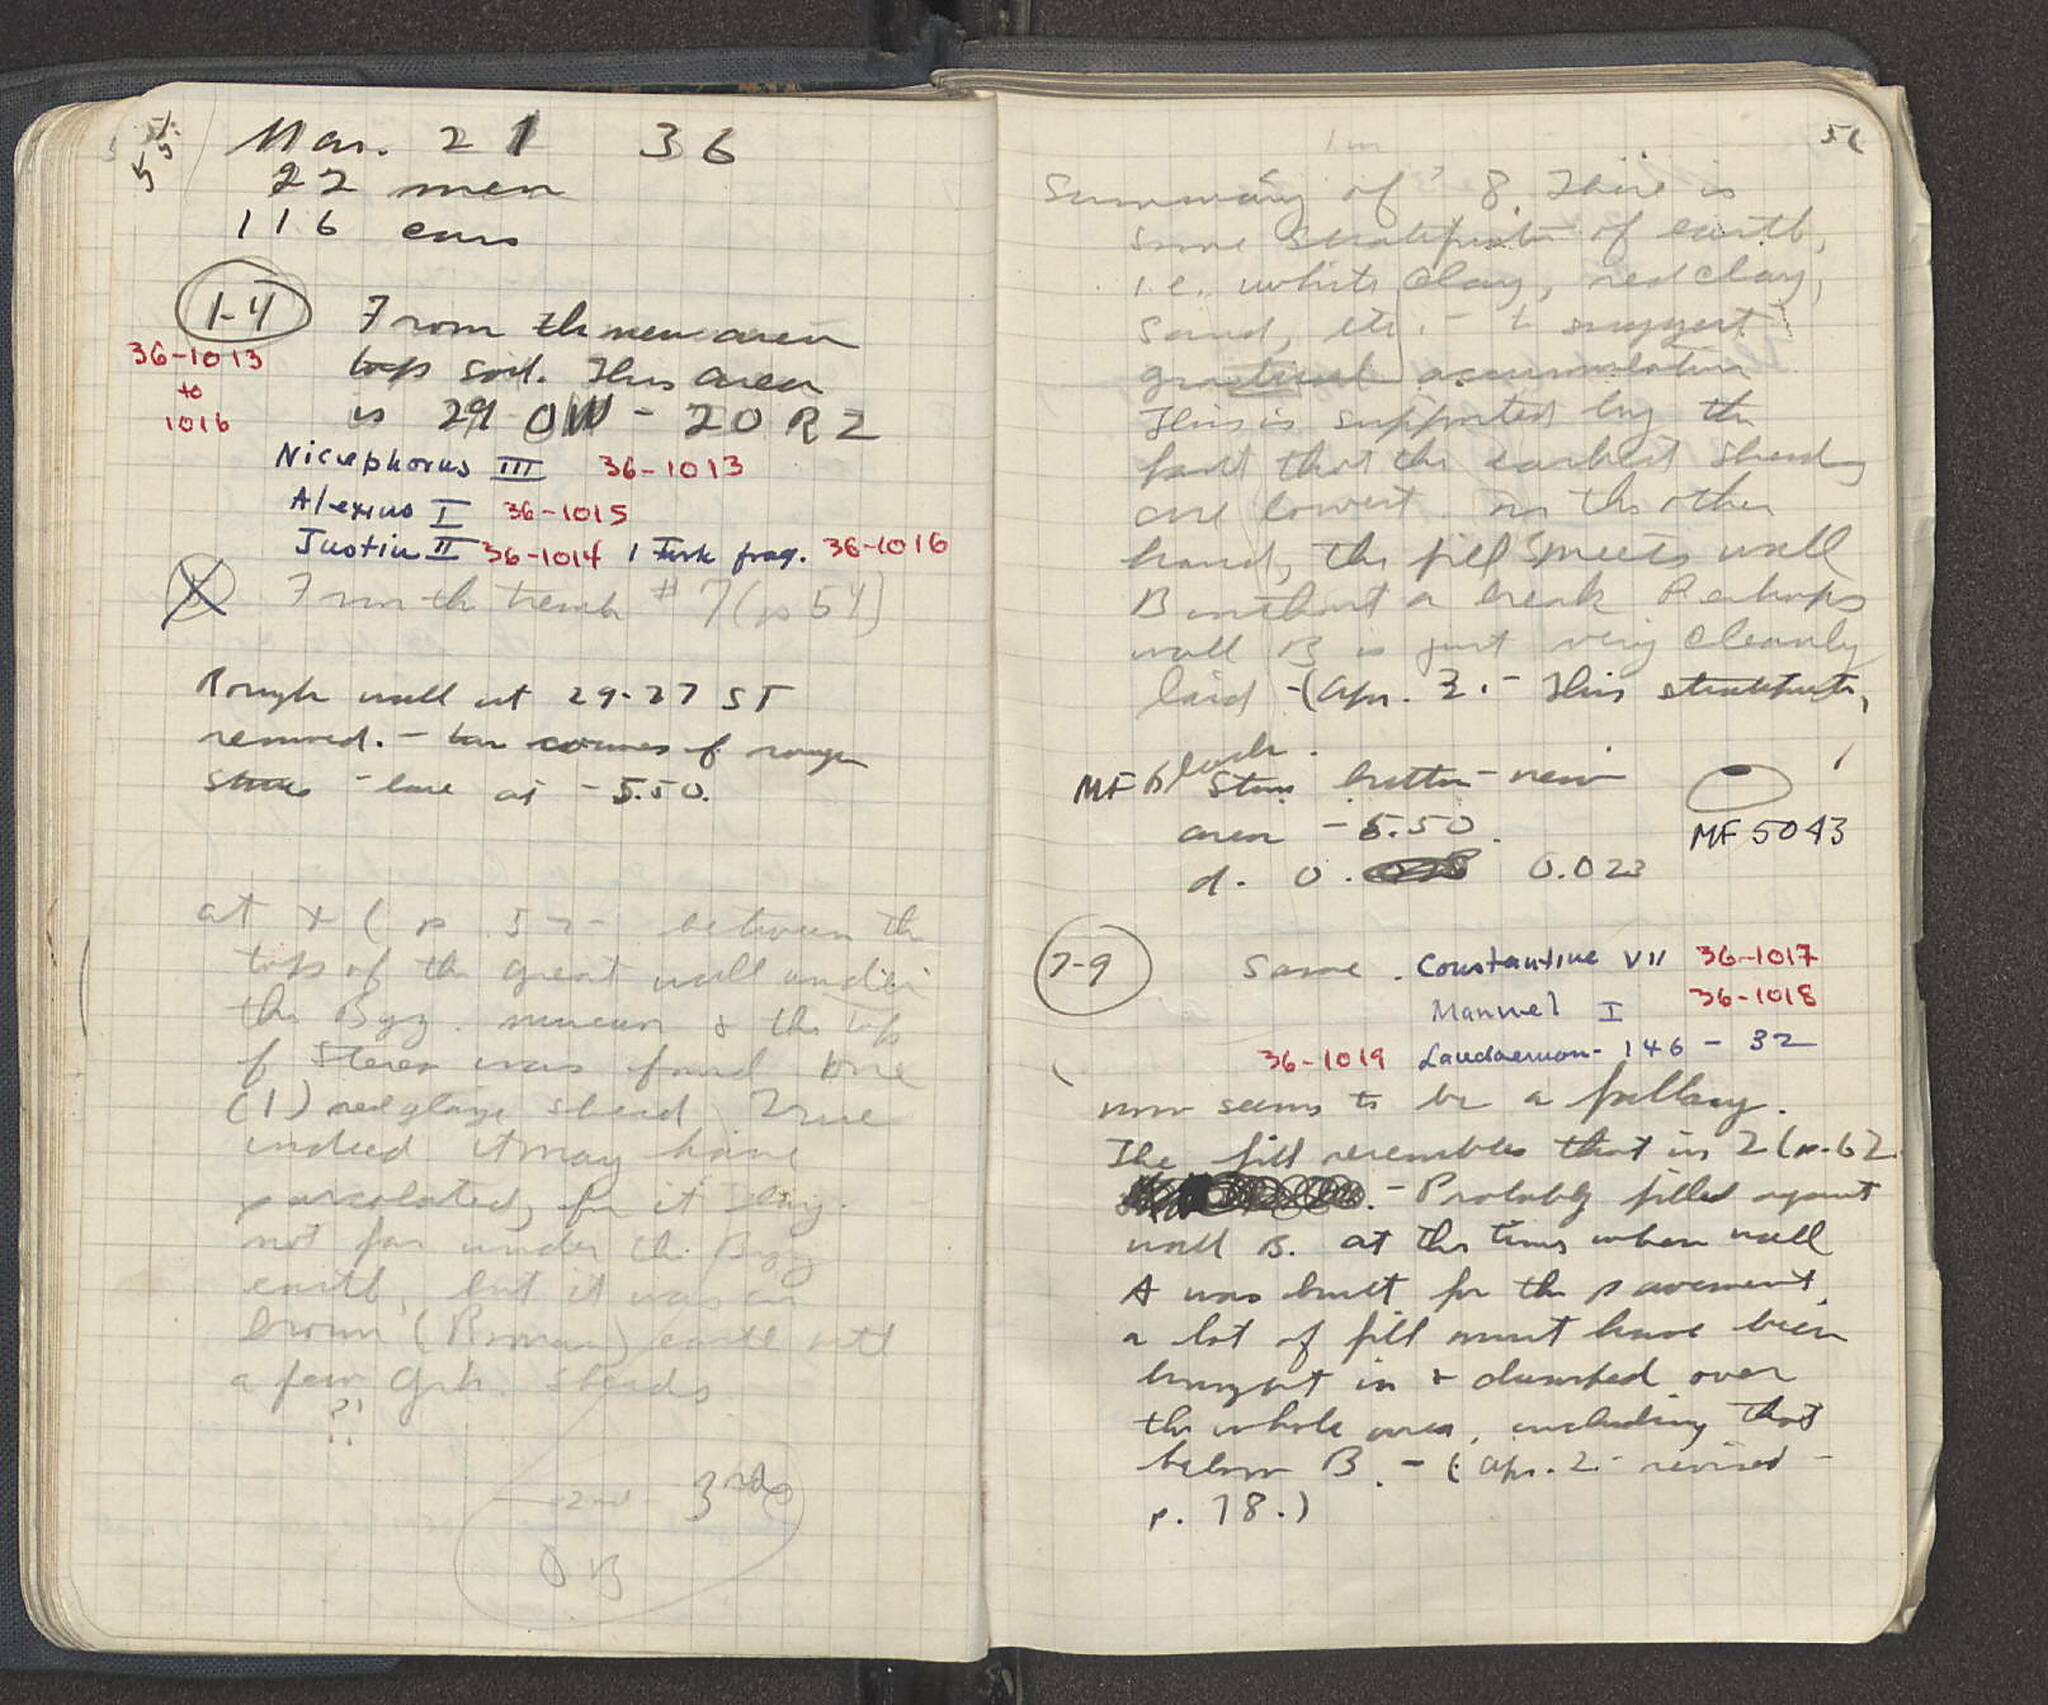 55
Mar. 21 36
22 men
116 cars
1-4 From the new area
top soil. This area
is 29 OW - 20 RZ
36-1013
to
1016
Nicephorus III 36-1013
Alexius I 36-1015
Justin II 36-1014 1 Turk frag. 36-1016
From the trench #7 (p 54)
Rough wall at 29-27 ST
removed. - two courses of rough
stones - base at -5.50.
at x (p 52- between the
tops of the great wall under
the Byz. museum & the top
of stereo was found one
(1) red glaze sherd. True
indeed it may have
percolated, for it lay
not far under the Byz
earth, but it was in
brown (Roman) earth with
a few Grk. sherds
?!
2nd 3rd
OB
56
Summary of 8. There is
some stratification of earth,
i.e. white clay, red clay,
sand, etc. - to suggest
gradual accumulation
This is supported by the
fact that the earliest sherds
are lowest. On the other
hand, the fill meets wall
B without a break Perhaps
wall B is just very cleanly
laid - (Apr. 2. - This
MF black Stone button - new
area - 5.50.
d. 0. 0.023
MF 5043
7-9 Same. Constantine VII 36-1017
Manuel I 36-1018
36-1019 Lacedaemon - 146 - 32
now seems to be a fallacy.
The fill resembles that in 2 (p. 62
- Probably filled against
wall B. at the time when wall
A was built for the pavement.
a lot of fill must have been
brought in & dumped over
the whole area, including that
below B. - (Apr. 2 - revised -
p. 78.)